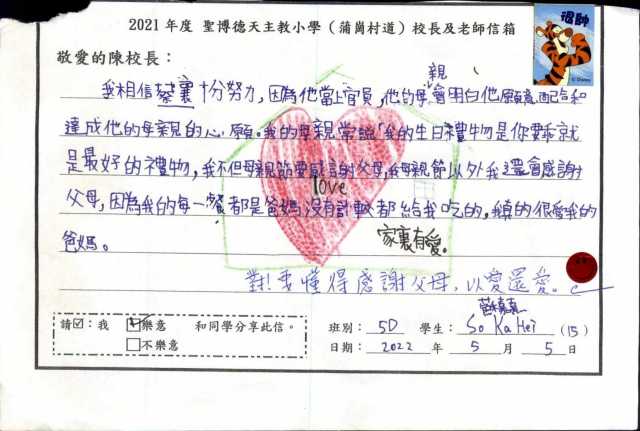 2021 年度 聖博德天主教小學（蒲崗村道）校長及老師信箱
敬愛的陳校長：
我相信蔡襄十分努力，因為他當上官員，他的母親會明白他願意配合和
達成他的母親的心願。我的母親常說「我的生日禮物是你要乖就
是最好的禮物，我不但母親節要感謝父母，我母親節以外我還會感謝
父母，因為我的每一餐都是爸媽沒有計較都給我吃的，我真的很愛我的
爸媽。
love
家裏有愛。
對！要懂得感謝父母，以愛還愛。
請☑：我 ☑樂意 和同學分享此信。
☐不樂意
班別：5D 學生：So Ka Hei (15)
日期：2022 年 5 月 5 日
© Disney